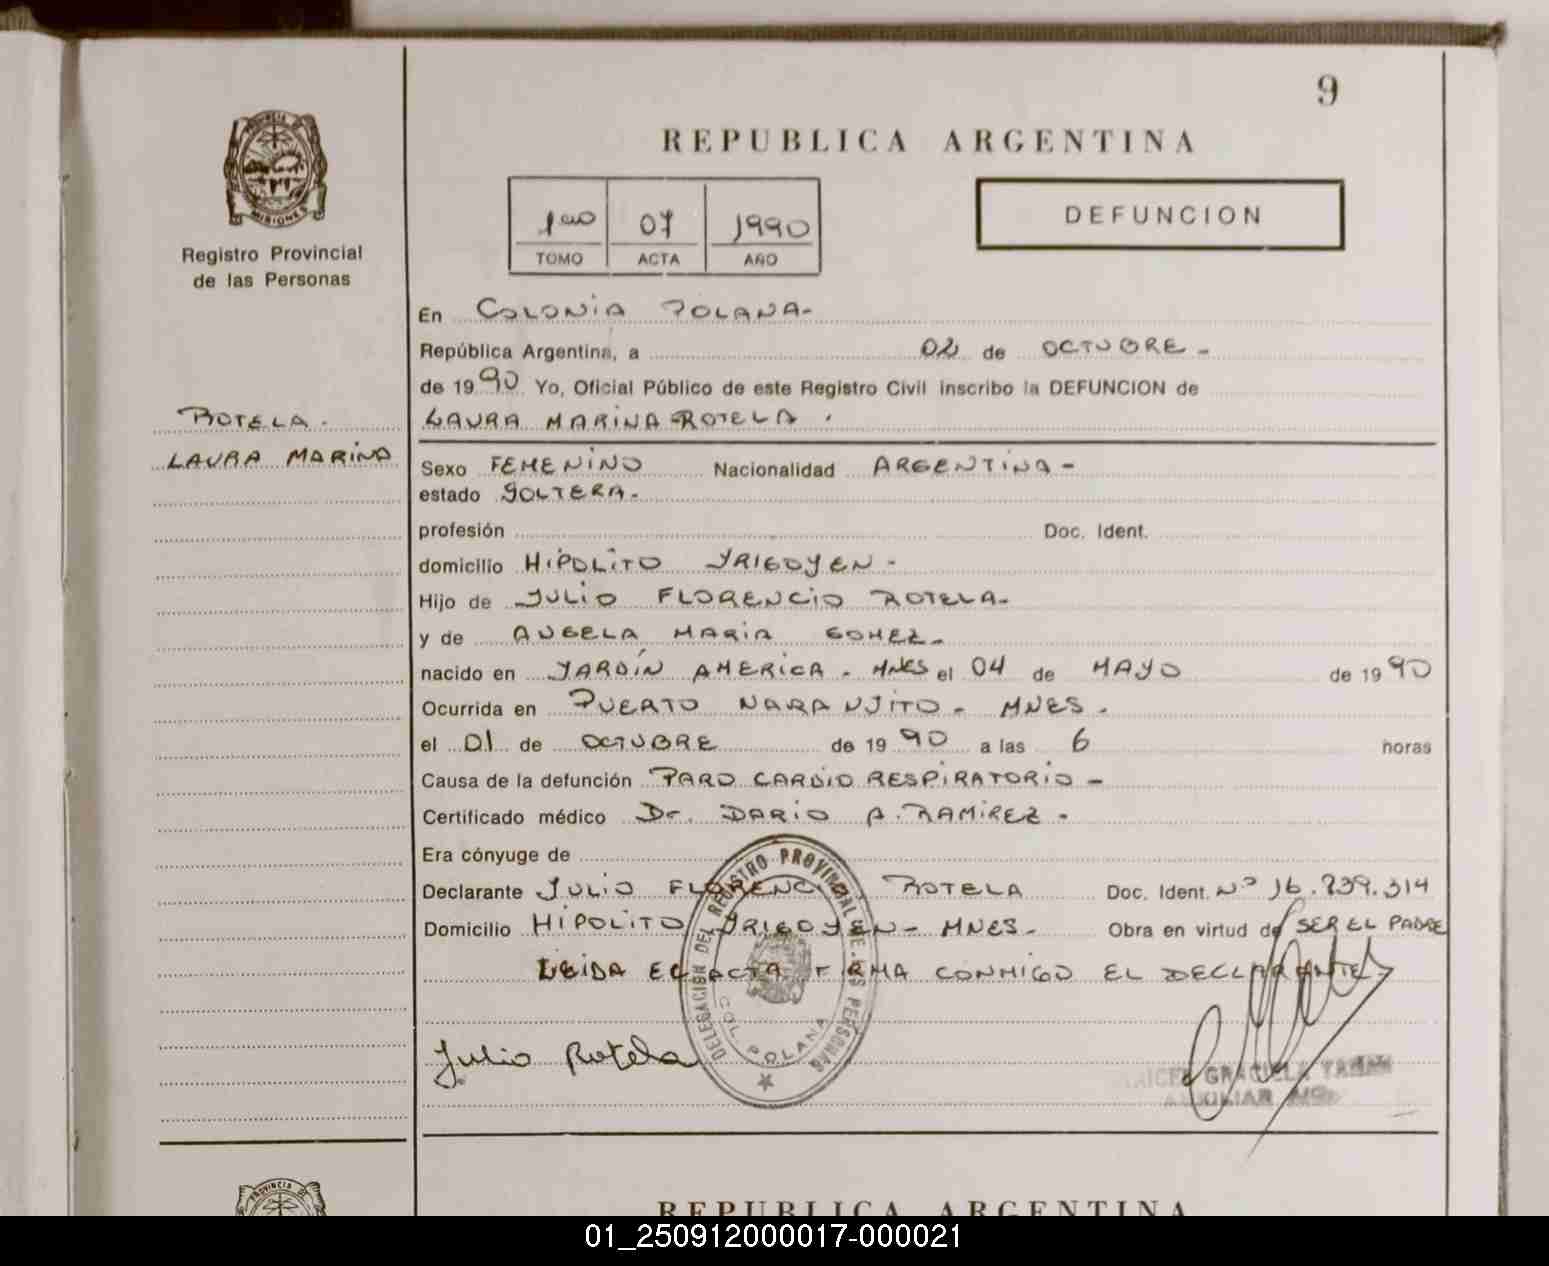 9
REPUBLICA ARGENTINA
PROVINCIA DE
MISIONES
Registro Provincial
de las Personas
1ero 07 1990
TOMO ACTA AÑO
DEFUNCION
En COLONIA POLANA-
República Argentina, a 02 de OCTUBRE -
de 1990 Yo, Oficial Público de este Registro Civil inscribo la DEFUNCION de
LAURA MARINA ROTELA.
ROTELA.
LAURA MARINA
Sexo FEMENINO Nacionalidad ARGENTINA-
estado SOLTERA.
profesión Doc. Ident.
domicilio HIPOLITO YRIGOYEN-
Hijo de JULIO FLORENCIO ROTELA.
y de ANGELA MARIA GOMEZ.
nacido en JARDIN AMERICA. MNES el 04 de MAYO de 1990
Ocurrida en PUERTO NARANJITO- MNES.
el 01 de OCTUBRE de 1990 a las 6 horas
Causa de la defunción PARO CARDIO RESPIRATORIO-
Certificado médico Dr. DARIO A. RAMIREZ.
Era cónyuge de
Declarante JULIO FLORENCIO ROTELA Doc. Ident. Nº 16.839.314
Domicilio HIPOLITO YRIGOYEN- MNES. Obra en virtud de SER EL PADRE
LEIDA EL ACTA FIRMA CONMIGO EL DECLARANTE
DELEGACION DEL REGISTRO PROVINCIAL DE LAS PERSONAS
COL. POLANA
Julio Rotela
GRACIELA
AUXILIAR
PROVINCIA DE
REPUBLICA ARGENTINA
01_250912000017-000021